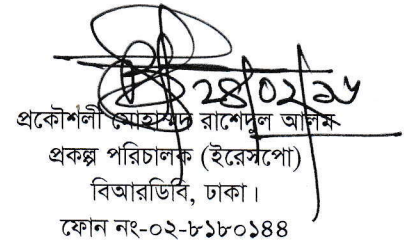 ২৪/০২/১৬
প্রকৌশলী মোহাম্মদ রাশেদুল আলম
প্রকল্প পরিচালক (ইরেসপো)
বিআরডিবি, ঢাকা।
ফোন নং-০২-৮১৮০১৪৪